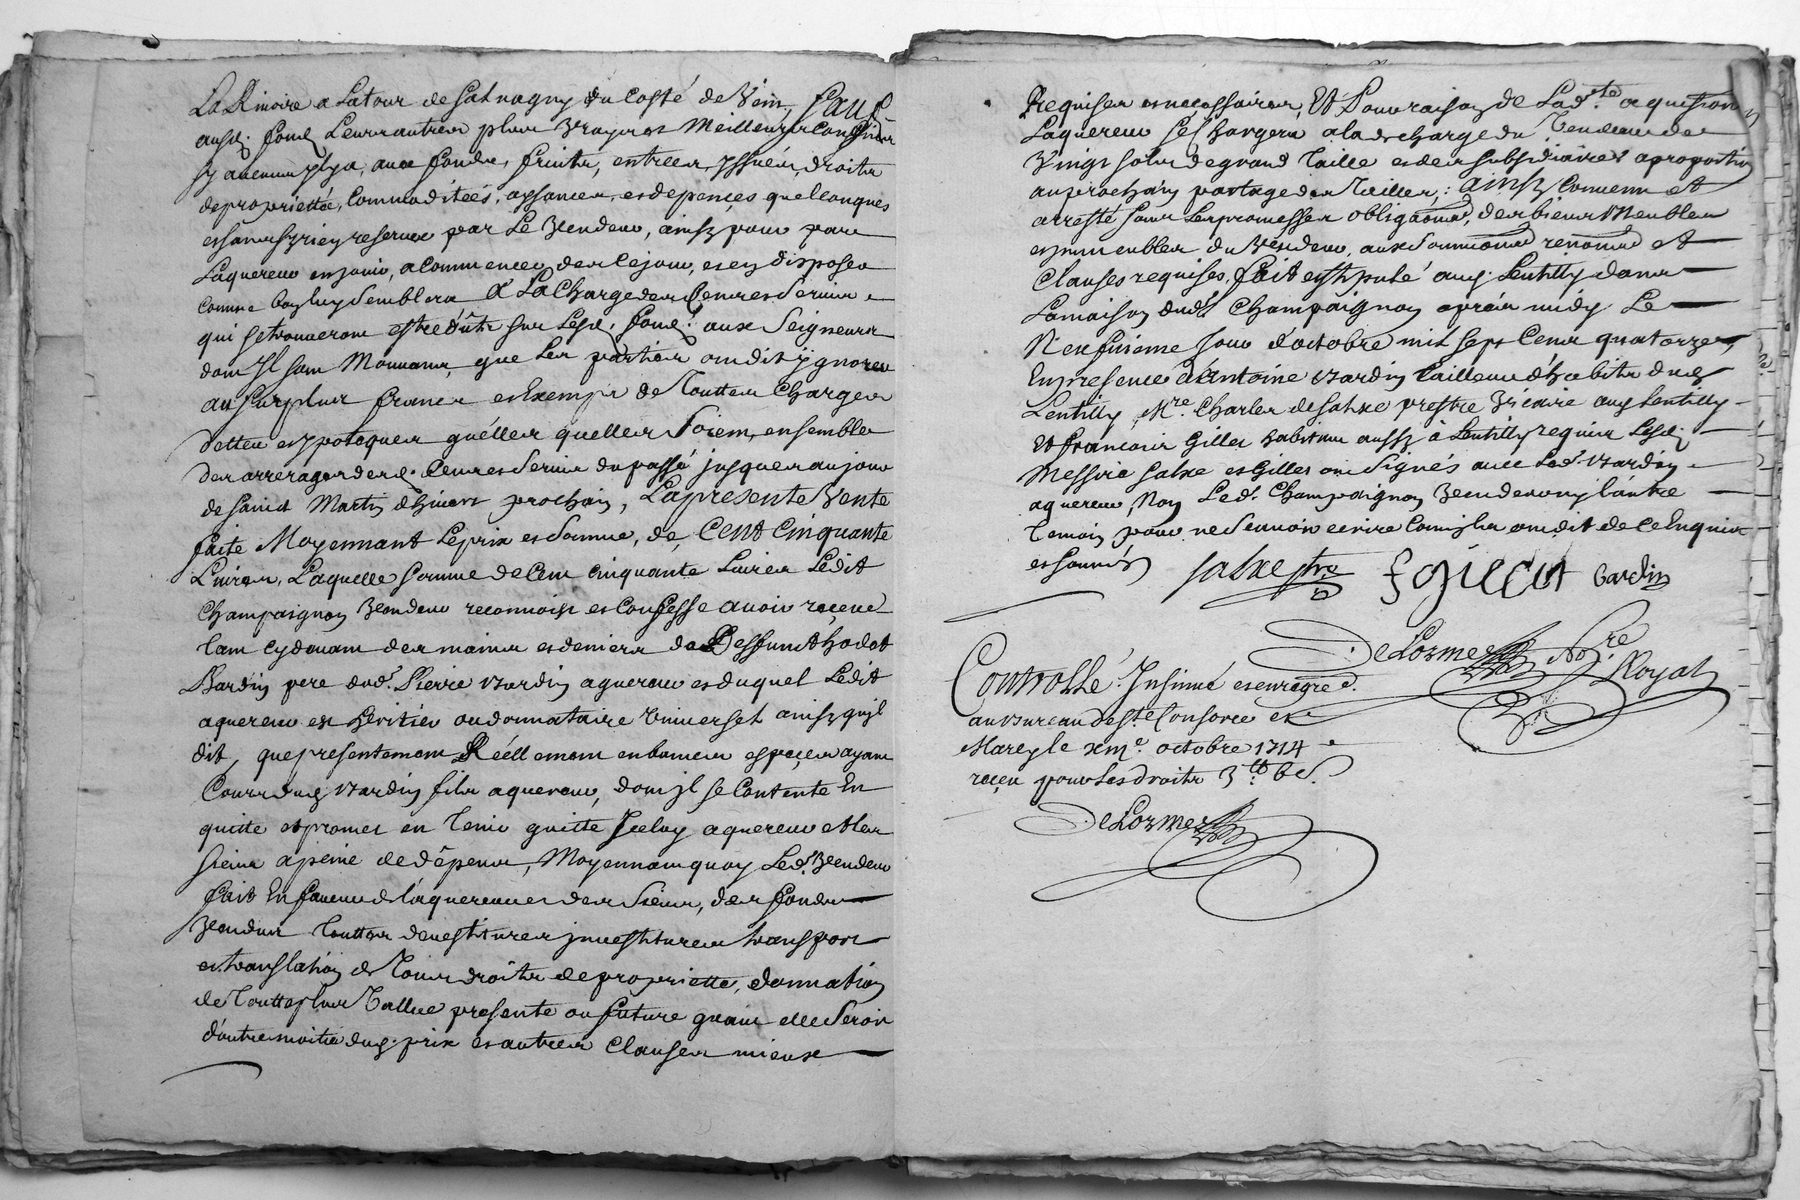 La Rivoire a Latour de Salvagny du Costé de Vein, Sauf
ausd. fond Leurs autres plus vrayes et Meilleures Confins
sy aucuns yl y a, avec fonds, fruits, entrées, yssués, droits
de propriétté, Commoditéés, aysances, et depences quelconques
et sans sy rien reserver par Le Vendeur, ainsy pour par
Laquereur en jouir, a Commencer des Cejour, et en disposer
comme bon luy Semblera A La Charge des Cens et Servis
qui se trouveront estre dûts sur Lesd. fond. aux Seigneurs
dont Il sont Mouvans, que Les parties ont dit ygnorer
au surplus francs et Exempt de Touttes Charges
dettes et ypoteques quélles quelles Soient, ensembles
des arrerages desd. Cens et Servis du passé jusques au jour
de Sainct Martin dhivert prochain, La presente Vente
faite Moyennant Le prix et Somme, de Cent Cinquante
Livres, Laquelle Somme de Cent Cinquante Livres Ledit
Champaignon Vendeur reconnoist et Confesse avoir reçeue
tant Cydevant des mains et deniers de Deffunct hodot
Bardin pere dud. Pierre Bardin aquereur et duquel Ledit
aquereur est heritier ou donnataire Universel ainsy quil
dit, que presentement Réellement en bonnes espeçes ayant
Cours dud. Bardin fils aquereur, dont jl se Contente En
quitte et promet en tenir quitte Jceluy aquereur et les
siens a peine de dépens, Moyennant quoy Led. Vendeur
fait En faveur de laquereur et des Siens, des fonds
Vendus touttes devestitures jnvestitures transport
et translation de Tous droits de proprietté, donnation
de Toutte plus Vallue presente ou future quant elle Seroit
d'outre moitié dud. prix et autres Clauses mieux
Requises et necessaires, Et Pour raison de Lad.te aquisition
Laquereur Se Chargera a la decharge du Vendeur de
Vingt sols de grand Taille et des subsidiaires a proportion
au prochain partage des Tailles; ainsy Convenu et
arresté sous Les promesses obligaōns, des biens Meubles
et jmmeubles du Vendeur, aux Soumissions renonōns et
Clauses requises, fait et stipulé aud. Lentilly dans
La maison dud. Champaignon aprés midy Le
Neufuieme Jour d'octobre mil sept Cent quatorze,
En presence d'Antoine Bardin tailleur d'habits dud.
Lentilly, Mre. Charles de Salxe prestre Vicaire aud. Lentilly
et francois Gillet habitant aussy à Lentilly requis Lesd.
Messire Salxe et Gillet ont Signés avec Led. Bardin
aquereur, Non Led. Champaignon Vendeur ny l'autre
temoin pour ne Scavoir ecrire Comils ont dit de Ce Enquis
et Sommés
Salxe ptre F Gillet bardin
DeLorme Nore. Royal
Controllé Insinué et enregré.
au bureau de Ste Consorce et
Marcy le xme. octobre 1714
reçeu pour Les droits 3tt 6s.
DeLorme